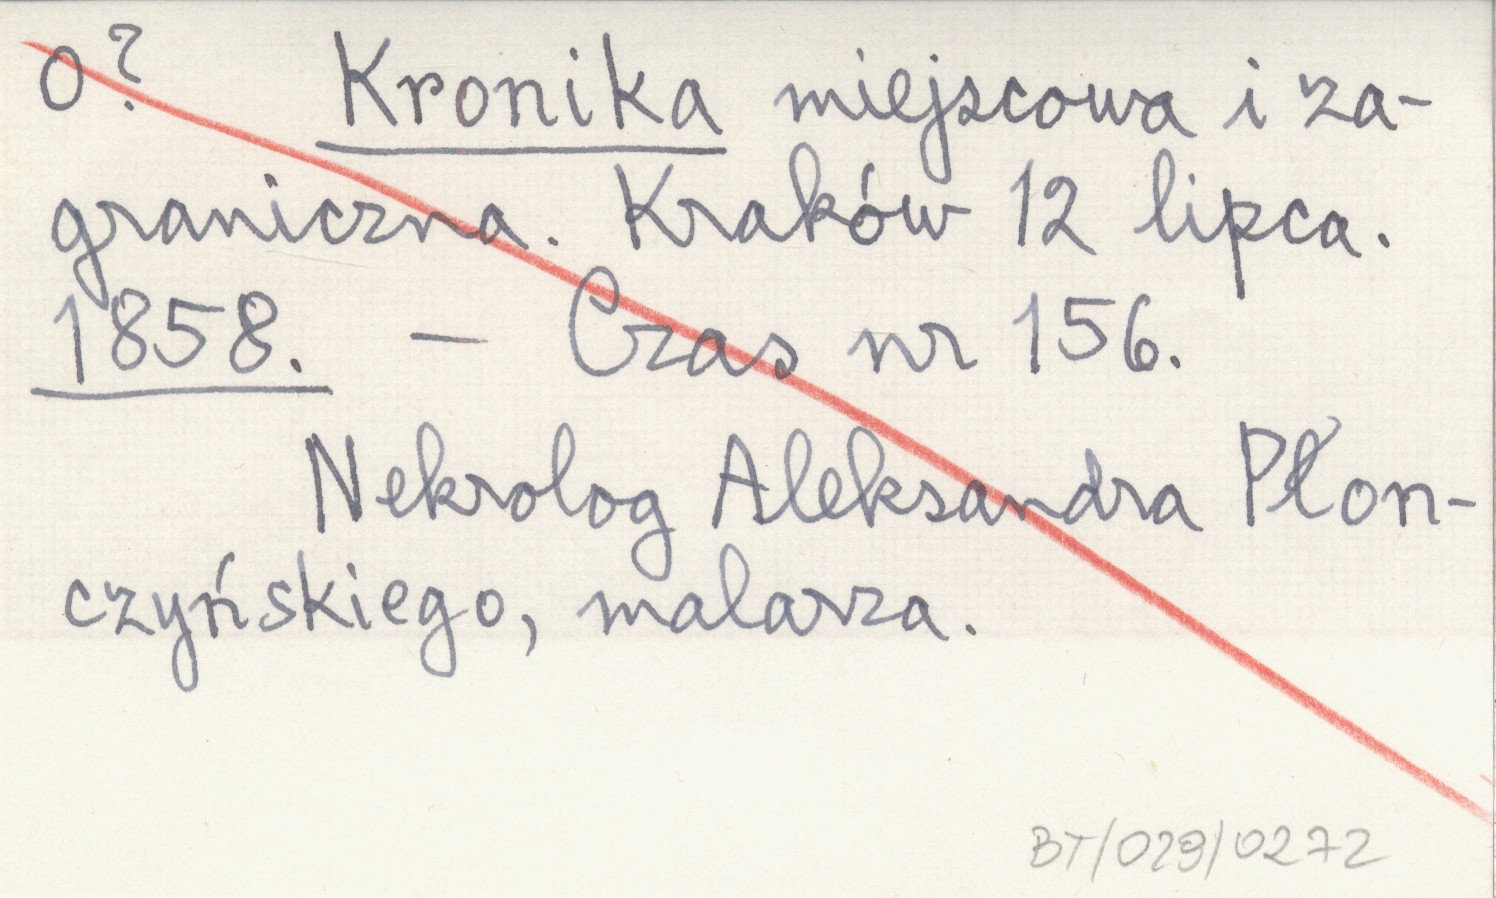 0? Kronika miejscowa i za-
graniczna. Kraków 12 lipca.
1858. — Czas nr 156.
Nekrolog Aleksandra Płon-
czyńskiego, malarza.
BT/029/0272